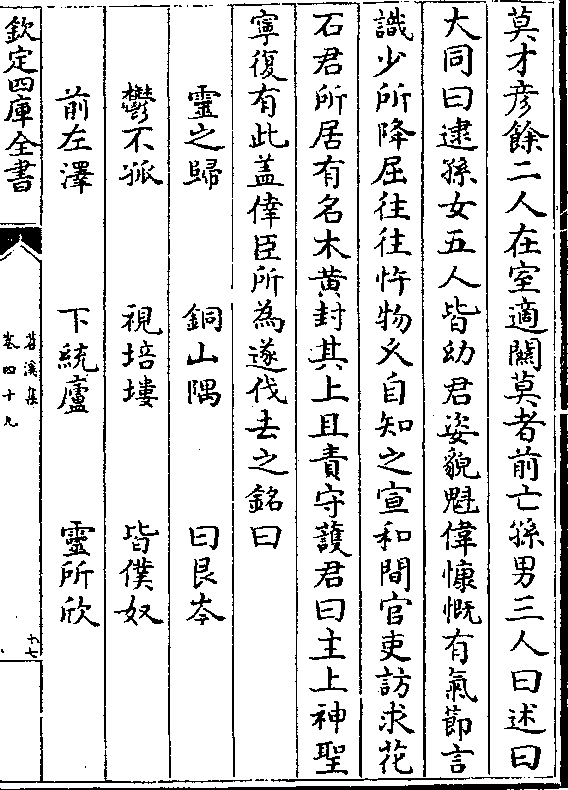 莫才彦餘二人在室適闗莫者前亡孫男三人曰述曰
大同曰逮孫女五人皆幼君姿貌魁偉慷慨有氣節言
識少所降屈往往忤物久自知之宣和間官吏訪求花
石君所居有名木黄封其上且責守護君曰主上神聖
寧復有此蓋倖臣所為遂伐去之銘曰
靈之歸　銅山隅　曰艮岑
鬱不孤　視培塿　皆僕奴
前左澤　下統廬　靈所欣
欽定四庫全書
苕溪集
卷四十九
十七